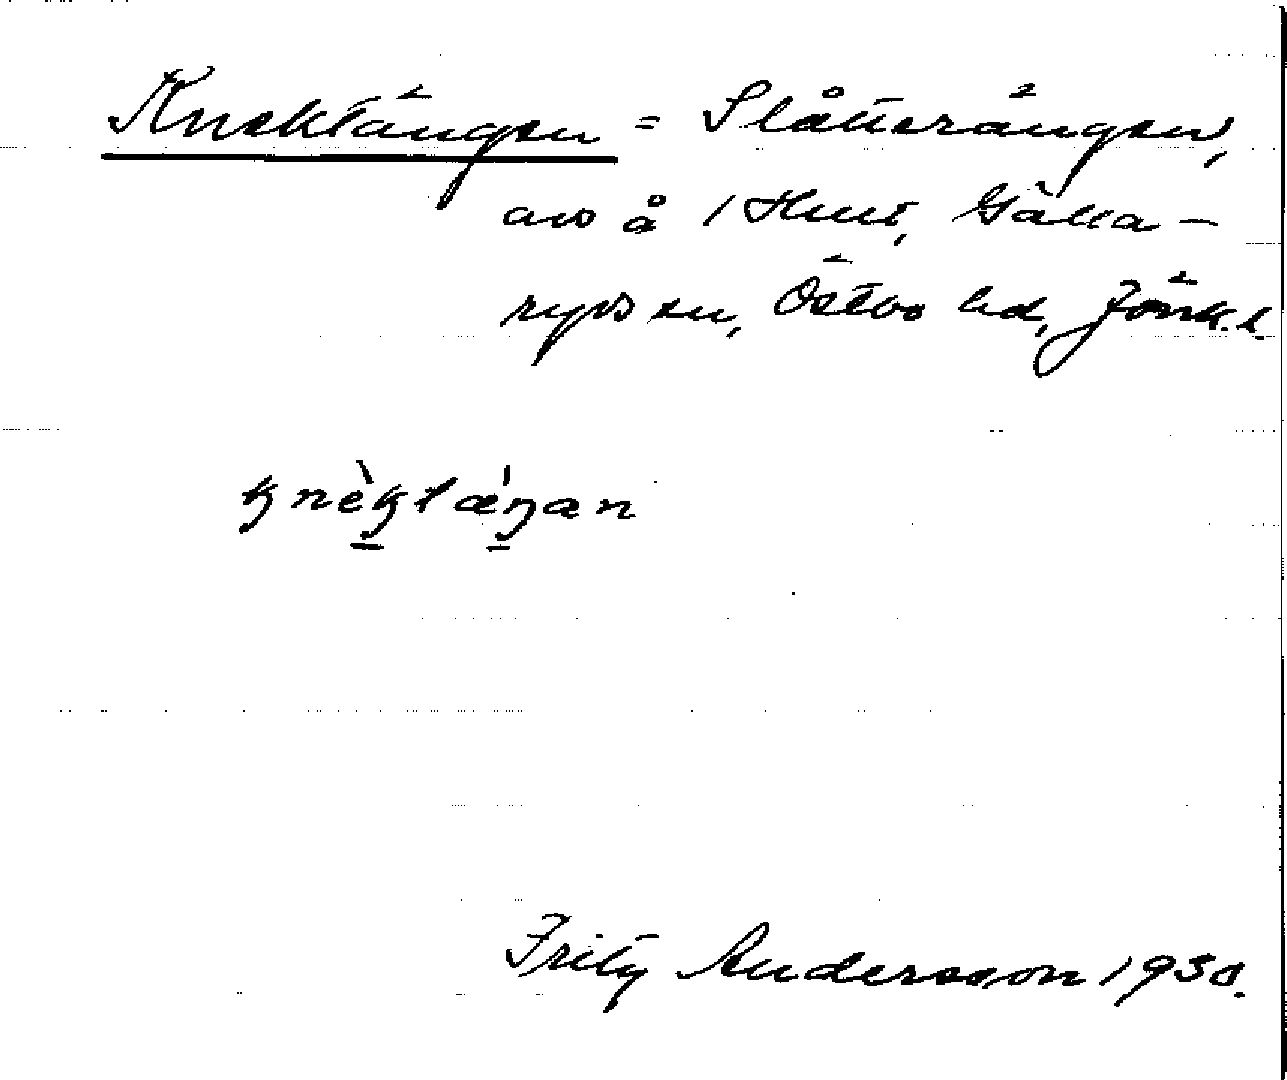 Knektängen = Slåtterängen,
avs å 1 Hult, Gälla-
ryds sn, Östbo hd, Jönk. l.
knèktæ´ŋan
Fritz Andersson 1930.